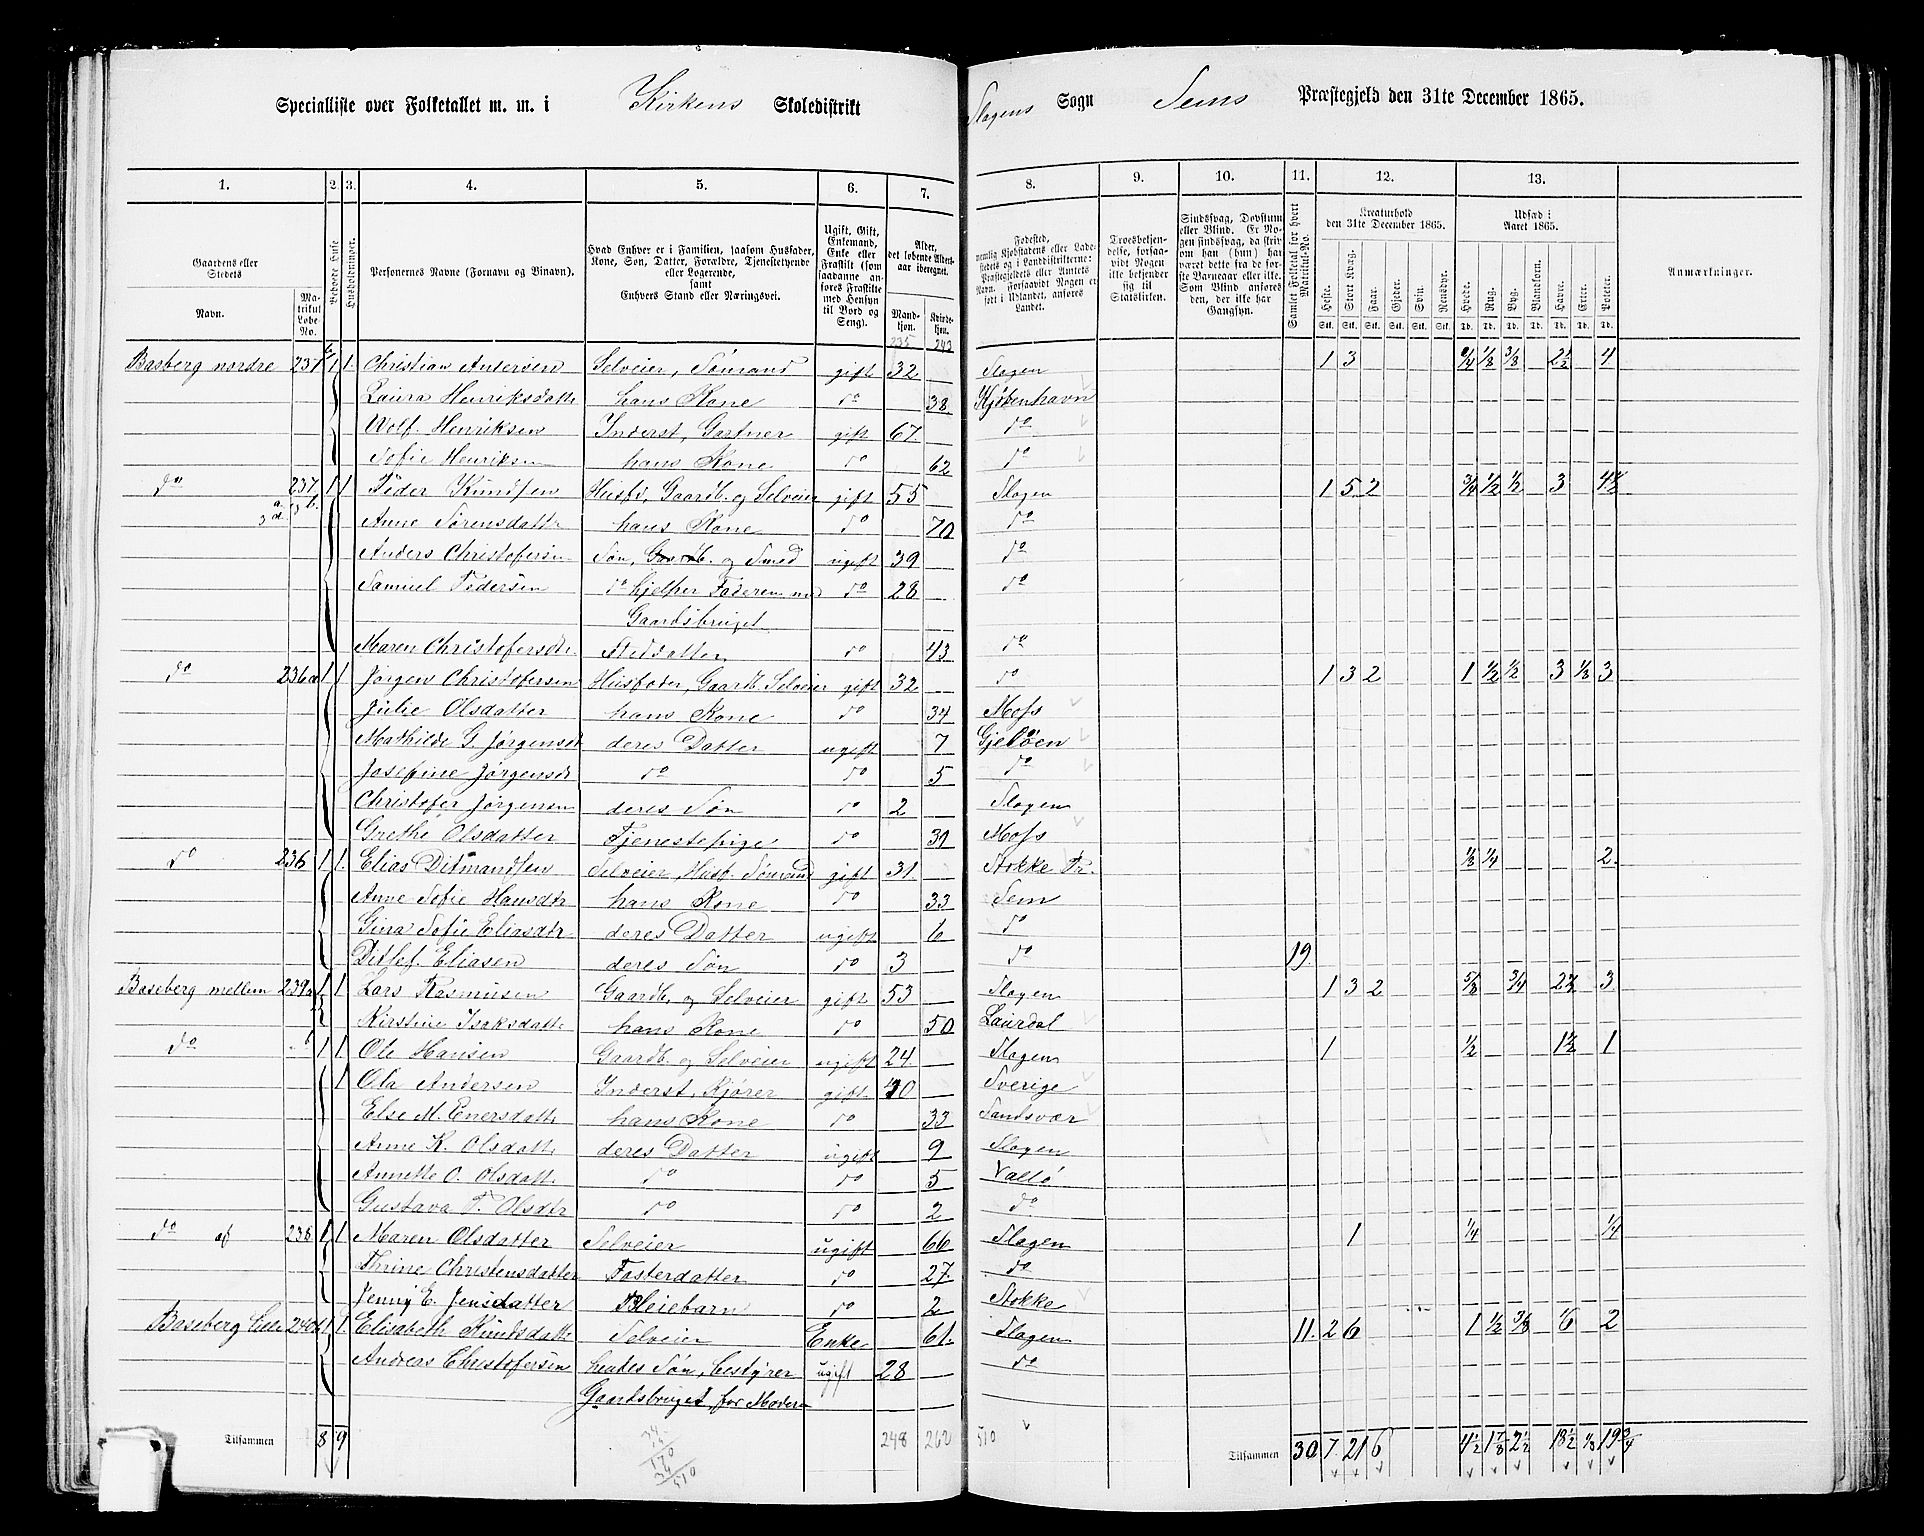 Specialliste over Folketallet m. m. i Kirkens Skoledistrikt Slagens Sogn Sems Præstegjeld den 31te December 1865.
1. 2. 3. 4. 5. 6. 7. 8. 9. 10. 11. 12. 13.
Gaardens eller Stedets Navn. Matrikul Løbe-No. Beboede Huse Husholdninger. Personernes Navne (Fornavn og Tilnavn). Hvad Enhver er i Familien, saasom Husfader, Kone, Søn, Datter, Forældre, Tjenestetyende eller Logerende, samt Enhvers Stand eller Næringsvei. Ugift, Gift, Enkemand, Enke eller Fraskilt (som saadanne anføres Fraskilte med Hensyn til Bord og Seng). Alder, det løbende Aldersaar iberegnet. Mandkjøn. Kvindekjøn. Fødested, nemlig Kjøbstadens eller Ladestedets og i Landdistrikterne: Præstegjeldets eller Amtets Navn. Forsaavidt Nogen er født i Udlandet, anføres Landet. Troesbekjendelse, forsaavidt Nogen ikke bekjender sig til Statskirken. Sindssvag, Døvstum eller Blind. Er Nogen sindssvag, da skrives det fra de første Barneaar eller ikke. Som Blind anføres den, der ikke har Gangsyn. Samlet Folketal for hvert Matrikul-No. Kreaturhold den 31te December 1865. Heste. Stort Kvæg. Faar. Gjeder. Svin. Rensdyr. Udsæd i Aaret 1865. Hvede. Rug. Byg. Blandkorn. Havre. Erter. Poteter. Anmærkninger.
235 243
Basberg nordre 237 1 1 Christian Andersen Selveier, Sømand gift 32 Slagen 1 3 1/8 3/8 2 1/2 4
Laura Henriksdatte hans Kone do 38 Kjøbenhavn
Wolf. Henriksen Inderst, Gartner gift 67 do
Sofie Henriksen hans Kone do 62 do
do 237 1 1 Peder Knudsen Husfd, Gaardb. og Selveier gift 55 Slagen 1 5 2 3/4 1/2 1/2 3 4 1/2
Anne Sørensdatt hans Kone do 70 do
Anders Christofersen Søn, Gaardb. og Smed ugift 39 do
Samuel Pedersen do hjelper Faderen med do 28 do
Gaardsbruget
Maren Christofersdtr Steddatter do 43 do
do 236a 1 1 Jørgen Christofersen Husfader, Gaardb. Selveier gift 32 do 1 3 2 1 1/2 1/2 3 1/8 3
Julie Olsdatter hans Kone do 34 Moss
Mathilde G. Jørgensdt deres Datter ugift 7 Gjeløen
Josefine Jørgensdt do do 5 do
Christofer Jørgensen deres Søn do 2 Slagen
Grethe Olsdatter Tjenestepige do 31 Moss
do 236 1 1 Elias Ditmandsen Selveier, Husf. Sømand gift 31 Stokke Pr. 1/8 1/4 2
Anne Sofie Hansdtr hans Kone do 33 Sem
Gina Sofie Eliasdtr deres Datter ugift 6 do
Ditlef. Eliasen deres Søn do 3 do 19
Baseberg mellem 239a 1 1 Lars Rasmusen Gaardb. og Selveier gift 53 Slagen 1 3 2 5/8 3/4 2 1/2 3
Kirstine Isaksdatte hans Kone do 50 Laurdal
do 1 1 Ole Hansen Gaardb. og Selveier ugift 24 Slagen 1 1/2 1 1/2 1
1 Ole Andersen Inderst, Kjører gift 40 Sverige
Else M. Enersdatte hans Kone do 33 Sandsvær
Anne K. Olsdatte deres Datter ugift 9 Slagen
Annette O. Olsdatt. do do 5 Vallø
Gustava T. Olsdtr do do 2 do
do af 238 1 1 Maren Olsdatter Selveier ugift 66 Slagen 1 1/4 1/4
Thrine Christensdatter Fosterdatter do 27 do
Jenny E. Jensdatter Pleiebarn do 2 Stokke
Baseberg Lille 240 1 1 Elisabeth Knudsdatte Selveier Enke 61 Slagen 11 2 6 1 1/2 3/8 6 2
Andreas Christofersen hendes Søn, bestyrer ugift 28 do
Gaardsbruget, for Moderen
Tilsammen 8 9 248 262 510 Tilsammen 30 7 21 6 4 1/2 1 7/8 2 1/2 18 1/2 1/8 19 3/4
34
170
34
510